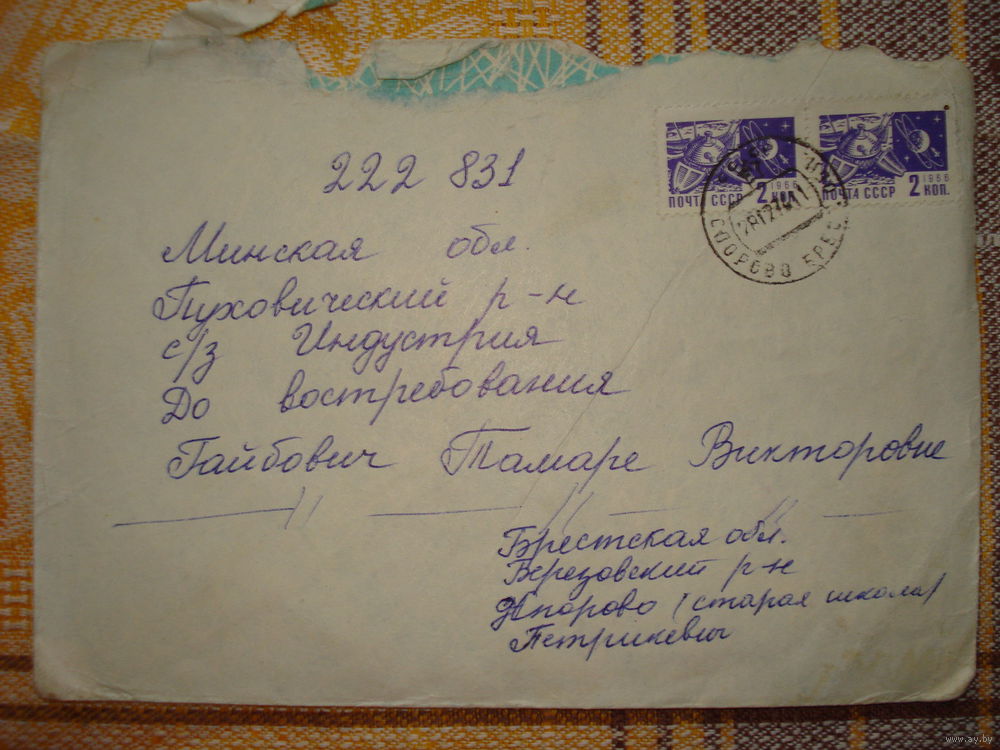 222 831
1966
2 КОП.
ПОЧТА СССР
1966
2 КОП.
ПОЧТА СССР
СПОРОВО БРЕС
Минская обл.
Пуховический р-н
с/з Индустрия
До востребования
Гайбович Тамаре Викторовне
Брестская обл.
Березовский р-н
Спорово (старая школа)
Петрикевич
www.ay.by